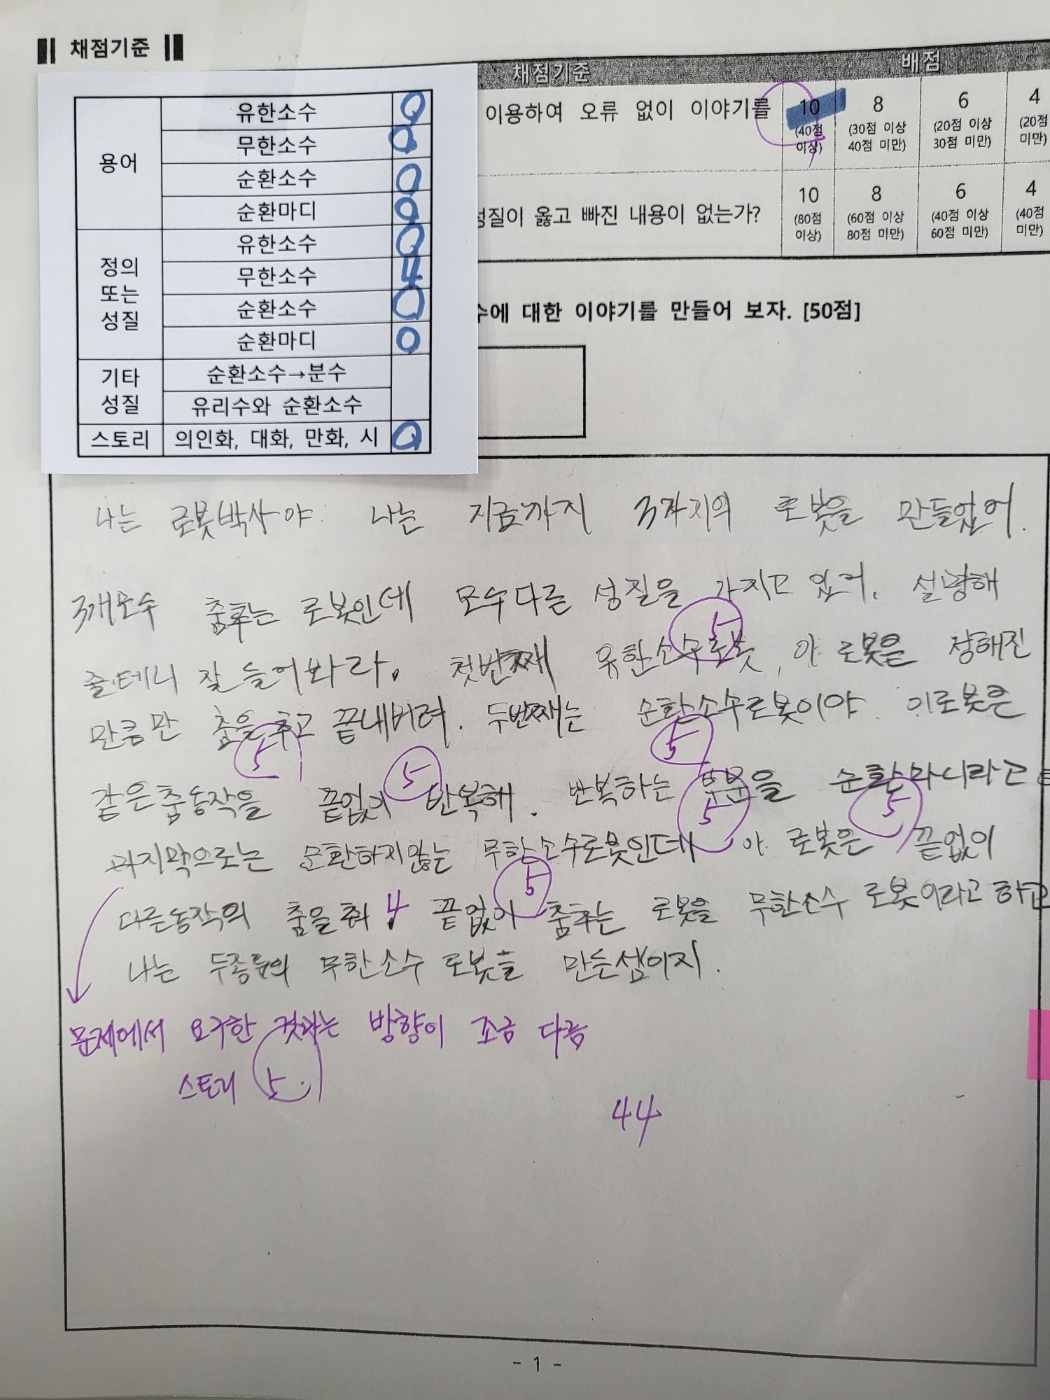 채점기준
채점기준 배점
이용하여 오류 없이 이야기를
10 (40점 이상)
8 (30점 이상 40점 미만)
6 (20점 이상 30점 미만)
4 (20점 미만)
성질이 옳고 빠진 내용이 없는가?
10 (80점 이상)
8 (60점 이상 80점 미만)
6 (40점 이상 60점 미만)
4 (40점 미만)
용어
유한소수 O
무한소수 O
순환소수 O
순환마디 O
정의 또는 성질
유한소수 O
무한소수 4
순환소수 O
순환마디 O
기타 성질
순환소수→분수
유리수와 순환소수
스토리 의인화, 대화, 만화, 시 O
수에 대한 이야기를 만들어 보자. [50점]
나는 로봇박사야. 나는 지금까지 3가지의 로봇을 만들었어.
3개모두 춤추는 로봇인데 모두다른 성질을 가지고 있어. 설명해
줄테니 잘 들어봐라. 첫번째 유한소수로봇, 이 로봇은 정해진
만큼만 춤을 추고 끝내버려. 두번째는 순환소수로봇이야. 이로봇은
같은춤동작을 끝없이 반복해. 반복하는 부분을 순환마디라고
마지막으로는 순환하지않는 무한소수로봇인데 이 로봇은 끝없이
다른동작의 춤을 춰 4 끝없이 춤추는 로봇을 무한소수 로봇이라고 하고
나는 두종류의 무한소수 로봇을 만든셈이지.
5
5
5
5
5
5
5
문제에서 요구한 것과는 방향이 조금 다름
스토리 5
44
- 1 -